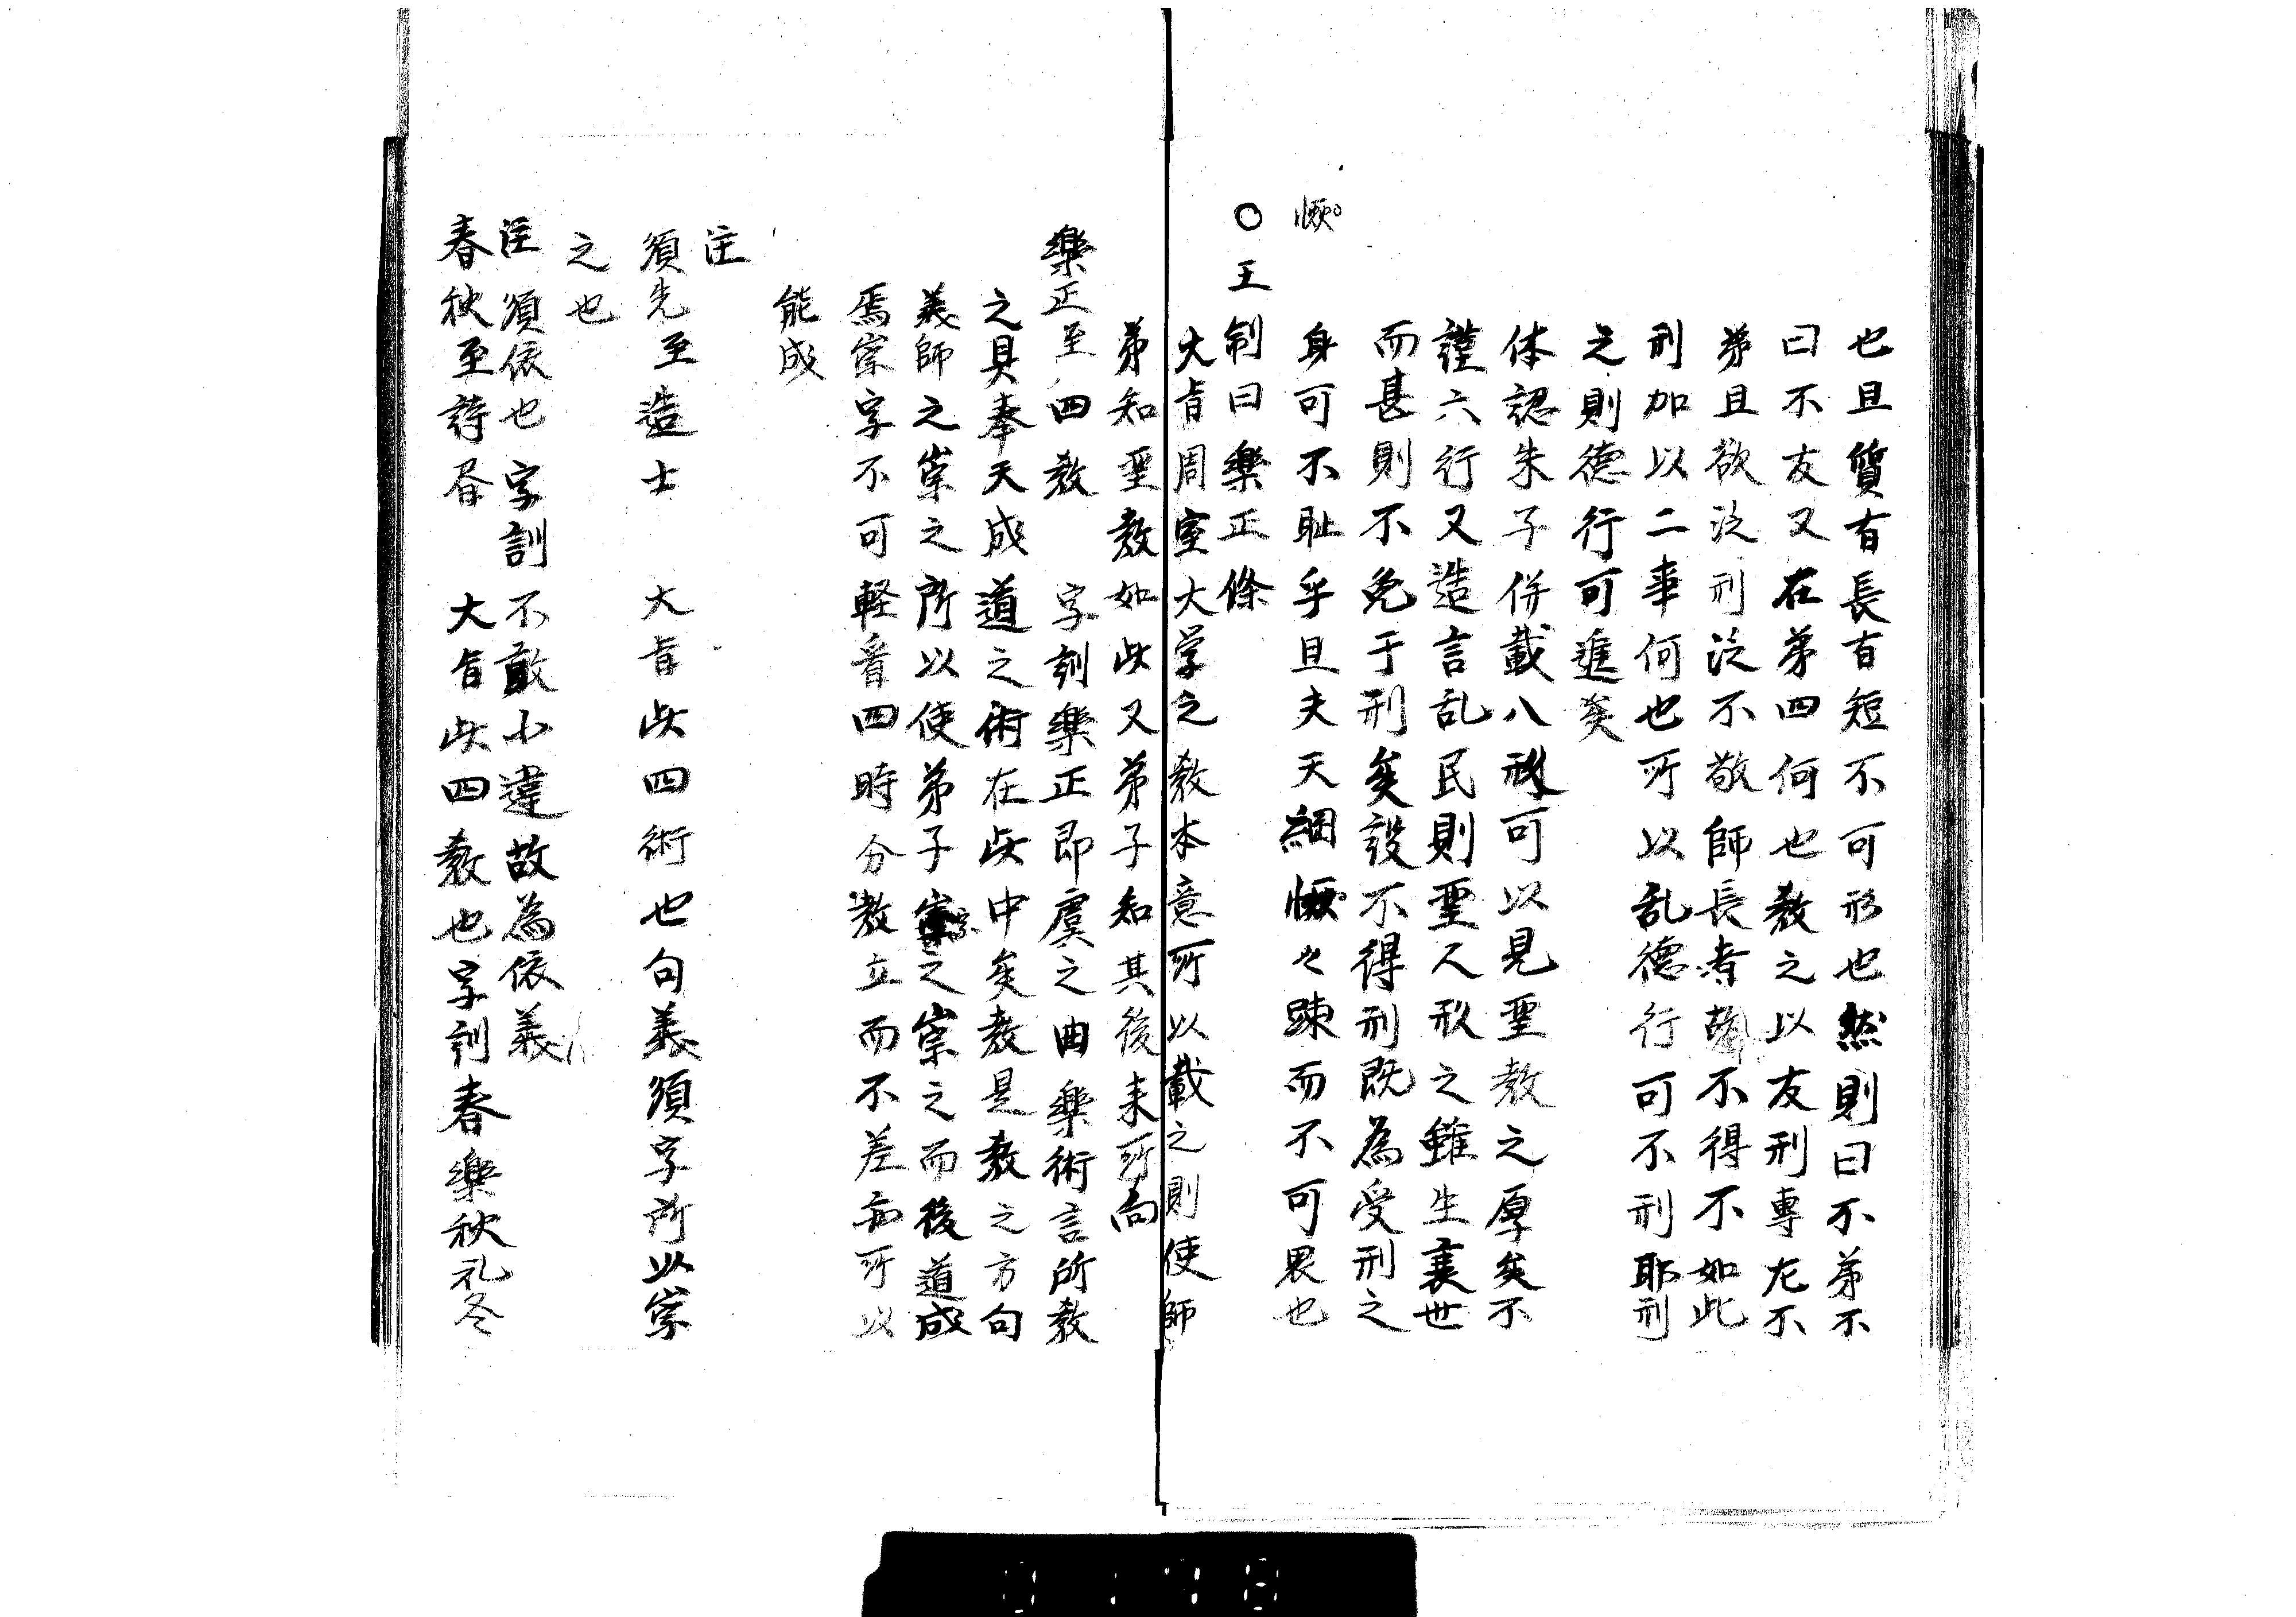 也且質有長有短不可形也然則曰不弟不
曰不友又在弟四何也教之以友刑專尤不
弟且欲泛刑泛不敬師長者 不得不如此
刑加以二事何也所以乱德行可不刑耶刑
之則德行可進矣
体認朱子併載八刑可以見聖教之厚矣不
謹六行又造言乱民則聖人刑之雖生衰世
而甚則不免于刑矣設不得刑既為受刑之
身可不耻乎且夫天網恢々踈而不可畏也
恢
○王制曰樂正條
大旨周室大学之教本意所以載之則使師
弟知聖教如此又弟子知其後来所向
樂正至四教 字刻樂正即虞之曲樂術言所教
之具奉天成道之術在此中矣教是教之方句
義師之崇之所以使弟子崇之崇之而後道成
焉崇字不可軽看四時分教立而不差而所以
能成
注
須先至造士 大旨此四術也句義須字所以崇
之也
注 須依也 字訓不敢小違故為依義
春秋至詩書 大旨此四教也字訓春樂秋礼冬